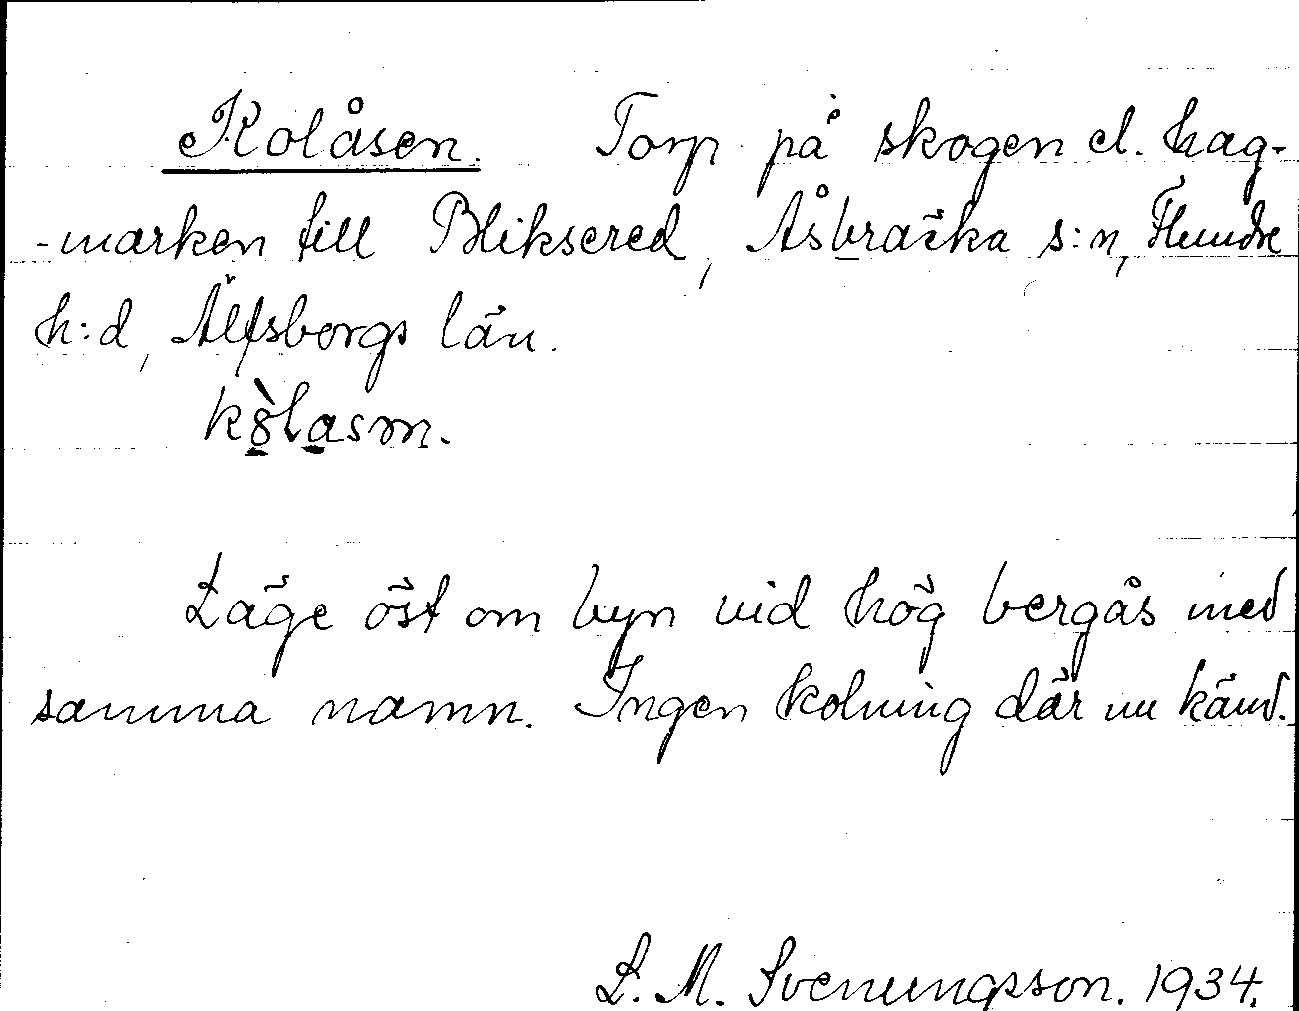 Kolåsen. Torp på skogen el. hag-
-marken till Bliksered, Åsbräcka s:n, Flundre
h:d, Älfsborgs län.
kòlasm.
Läge öst om byn vid hög bergås med
samma namn. Ingen kolning där nu känd.
L. M. Svenungsson. 1934.